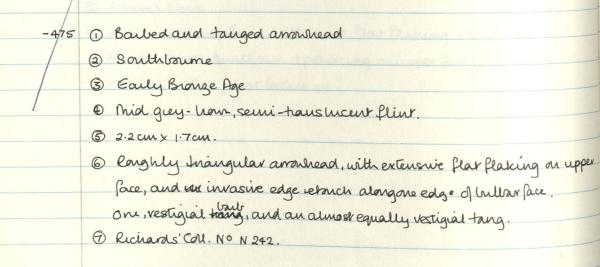 -475 ① Barbed and tanged arrowhead
② Southbourne
③ Early Bronze Age
④ Mid grey-brown, semi-translucent flint.
⑤ 2.2cm x 1.7cm.
⑥ Roughly triangular arrowhead, with extensive flat flaking on upper
face, and invasive edge retouch along one edge of bulbar face.
One, vestigial barb, and an almost equally vestigial tang.
⑦ Richards' Coll. No N 242.